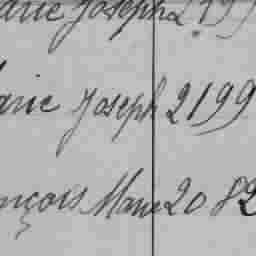 arie Joseph 219
arie Joseph 2199
nçois Marie 2082